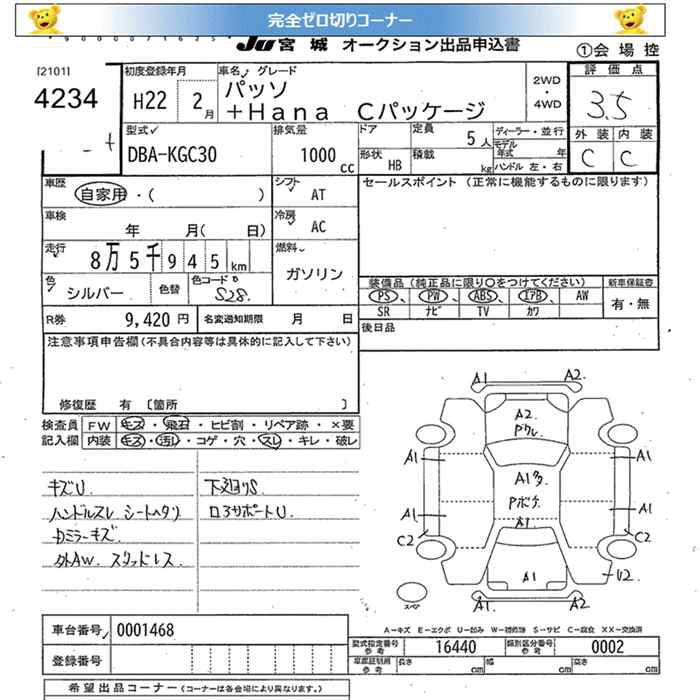 完全ゼロ切りコーナー
JU宮城 オークション出品申込書
①会場控
[2101]
4234
初度登録年月
H22 2月
車名 グレード
パッソ
+Hana Cパッケージ
2WD・4WD
評価点
3.5
外装 内装
C C
型式
DBA-KGC30
排気量
1000cc
ドア
定員 5人
形状 HB
積載 kg
ディーラー・並行
モデル年式 年
ハンドル 左・右
車歴 自家用・( )
シフト AT
セールスポイント (正常に機能するものに限ります)
車検 年 月( 日)
冷房 AC
走行 8万5千945km
燃料 ガソリン
色 シルバー 色替 色コード S28
装備品(純正品に限り○をつけてください)
新車保証書
有・無
PS、PW、ABS、エアB、AW
SR ナビ TV カワ
R券 9,420円 名変通知期限 月 日
後日品
注意事項申告欄(不具合内容等は具体的に記入して下さい)
修復歴 有 〔箇所 〕
検査員記入欄
FW キズ・飛石・ヒビ割・リペア跡・×要
内装 キズ・汚れ・コゲ・穴・スレ・キレ・破レ
キズU
ハンドルスレ シートヘタリ
Dミラーキズ
外AW. スタッドレス
下廻りS
ロアサポートU
A1 A2
A2
Pクレ
A1 A1
A1多
Pボケ
A1 A1
A1
C2 C2
A1 U2
スペア
A1 A2
A-キズ E-エクボ U-凹み W-補修跡 S-サビ C-腐食 XX-交換済
車台番号 0001468
型式指定番号参考 16440 類別区分番号参考 0002
登録番号
車庫証明用参考 長さ cm 幅 cm 高さ cm
希望出品コーナー (コーナーは各会場により異なります。)